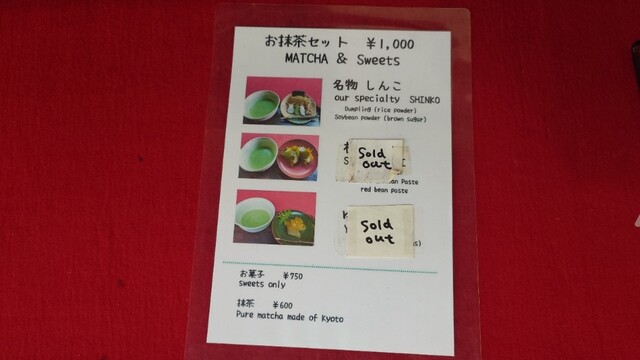 お抹茶セット ￥1,000
MATCHA & Sweets
名物 しんこ
our specialty SHINKO
Dumpling (rice powder)
Soybean powder (brown sugar)
Sold
out
Paste
red bean paste
Sold
out
お菓子 ￥750
sweets only
抹茶 ￥600
Pure matcha made of Kyoto